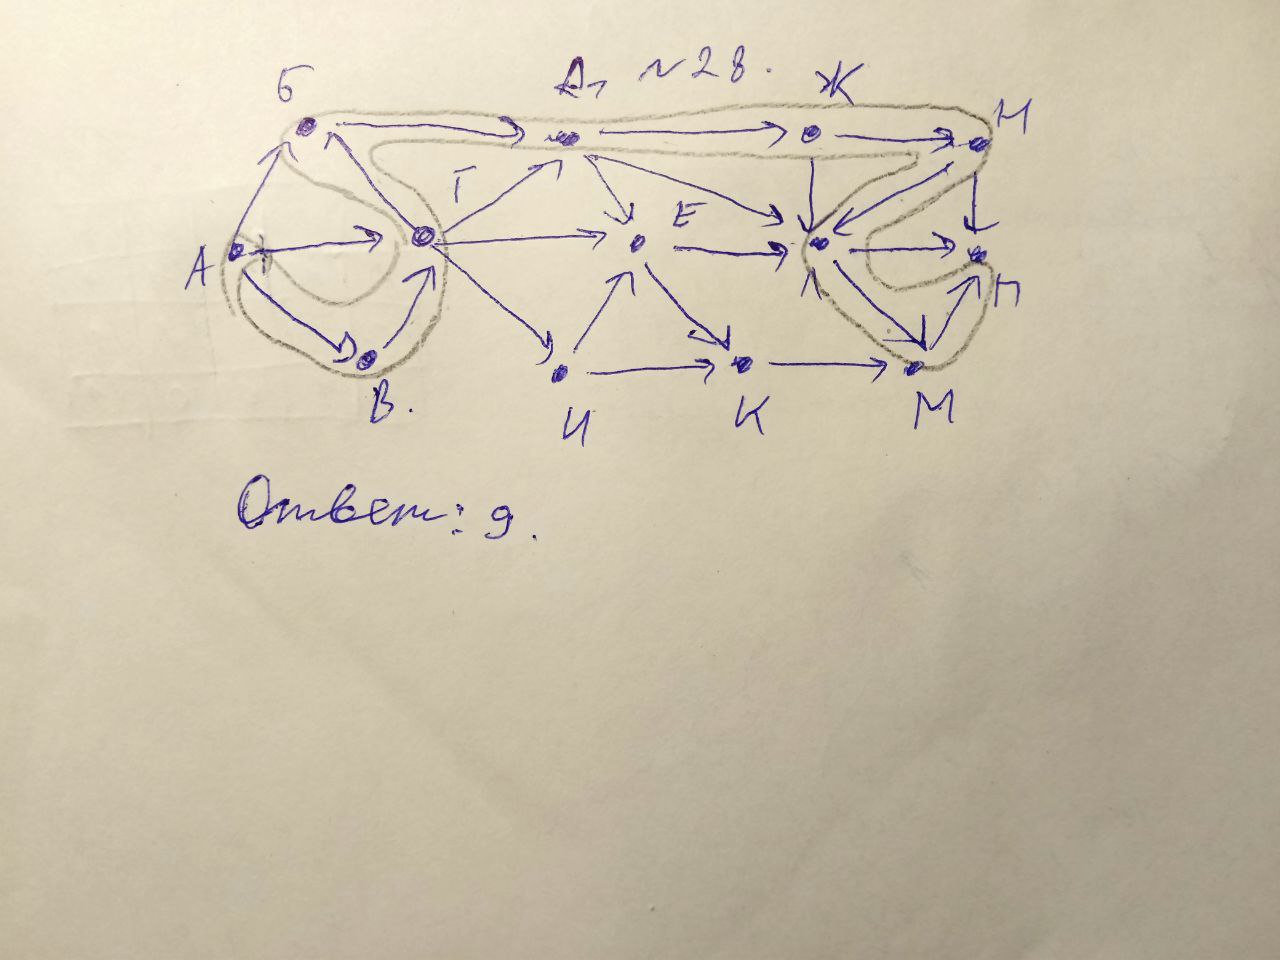 Б Д, №28. Ж Н
Г Е
А П
В. И К М
Ответ: 9.